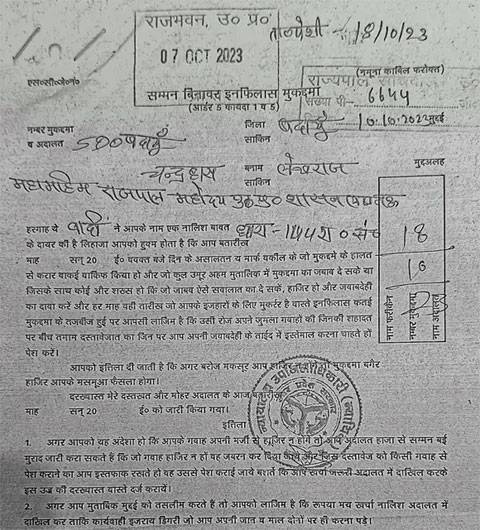 राजभवन, उ० प्र०
07 OCT 2023
ता०पेशी - 18/10/23
एस०सी०जे०नं०
(नमूना काबिल फरोक्त)
सम्मन बिनावर इनफिसाल मुकद्दमा
(आर्डर 5 कायदा 1 व 5)
राज्यपाल सचिवालय
संख्या पी- 6644
नम्बर मुकद्दमा
व अदालत SDO बदायूँ
जिला बदायूँ
साकिन
10.10.2023 मुद्दई
चन्द्रहास
बनाम लेखराज
साकिन
मुद्दअलह
महामहिम राजपाल महोदय उ०प्र० शासन लखनऊ
हरगाह वे वादी ने आपके नाम एक नालिश बाबत धारा-144 रा० संह
के दायर की है लिहाजा आपको हुक्म होता है कि आप बतारीख 18
माह 10 सन् 20 ई० बवक्त बजे दिन के असालतन या मार्फ वकील के जो मुकद्दमे के हालत
से करार बाकई वाकिफ किया हो और जो कुल उमूर अहम मुतालिक में मुकद्दमा का जबाब दे सके या
जिसके साथ कोई और शख्स हो कि जो जाबब ऐसे सवालात का दे सकें, हाजिर हो और जवाबदेही
का दावा करें और हर माह वही तारीख जो आपके इजहारों के लिए मुकर्टर है वास्ते इनफिसाल कतई
मुकद्दमा के तजवीज हुई पर आपसी लाजिम है कि उसी रोज अपने जुमला गवाहों की जिनकी शहादत
पर बीच तमाम दस्तावेजात का जिन पर आप अपनी जवाबदेही के ताईद में इस्तेमाल करना चाहते हों
पेश करें।
नाम फरीकैन
नम्बर मुकद्दमा
नाम अदालत
आपको इत्तिला दी जाती है कि अगर बरोज मकसूर आप हाजिर मुकद्दमा बगैर
हाजिर आपके मसमूआ फैसला होगा।
दरख्वास्त मेरे दस्तखत और मोहर अदालत के आज बतारीख
माह सन् 20 ई० को जारी किया गया।
इत्तिला
न्यायालय उपजिलाधिकारी (न्यायिक)
उत्तर प्रदेश सरकार
1. अगर आपको यह अंदेशा हो कि आपके गवाह अपनी मर्जी से हाजिर न होंगे तो आप अदालत हाजा से सम्मन बई
मुराद जारी करा सकते हैं कि जो गवाह हाजिर न हों वह जबरन कर दिया जाये और जिस दस्तावेज को किसी गवाह से
पेश कराने का आप इस्तफाक रखते हो वह उससे पेश कराई जाये बशर्ते कि आप खर्चा जरूरी अदालत में दाखिल करके
इस उज्र की दरख्वास्त बास्ते दर्ज करायें।
2. अगर आप मुताबिक मुद्दई को तसलीम करते हैं तो आपको लाजिम है कि रूपया मय खर्चा नालिश अदालत में
दाखिल कर ताकि कार्यवाही इजराय डिगरी जो आप अपनी जात व माल दोनों पर ही करना पड़े।